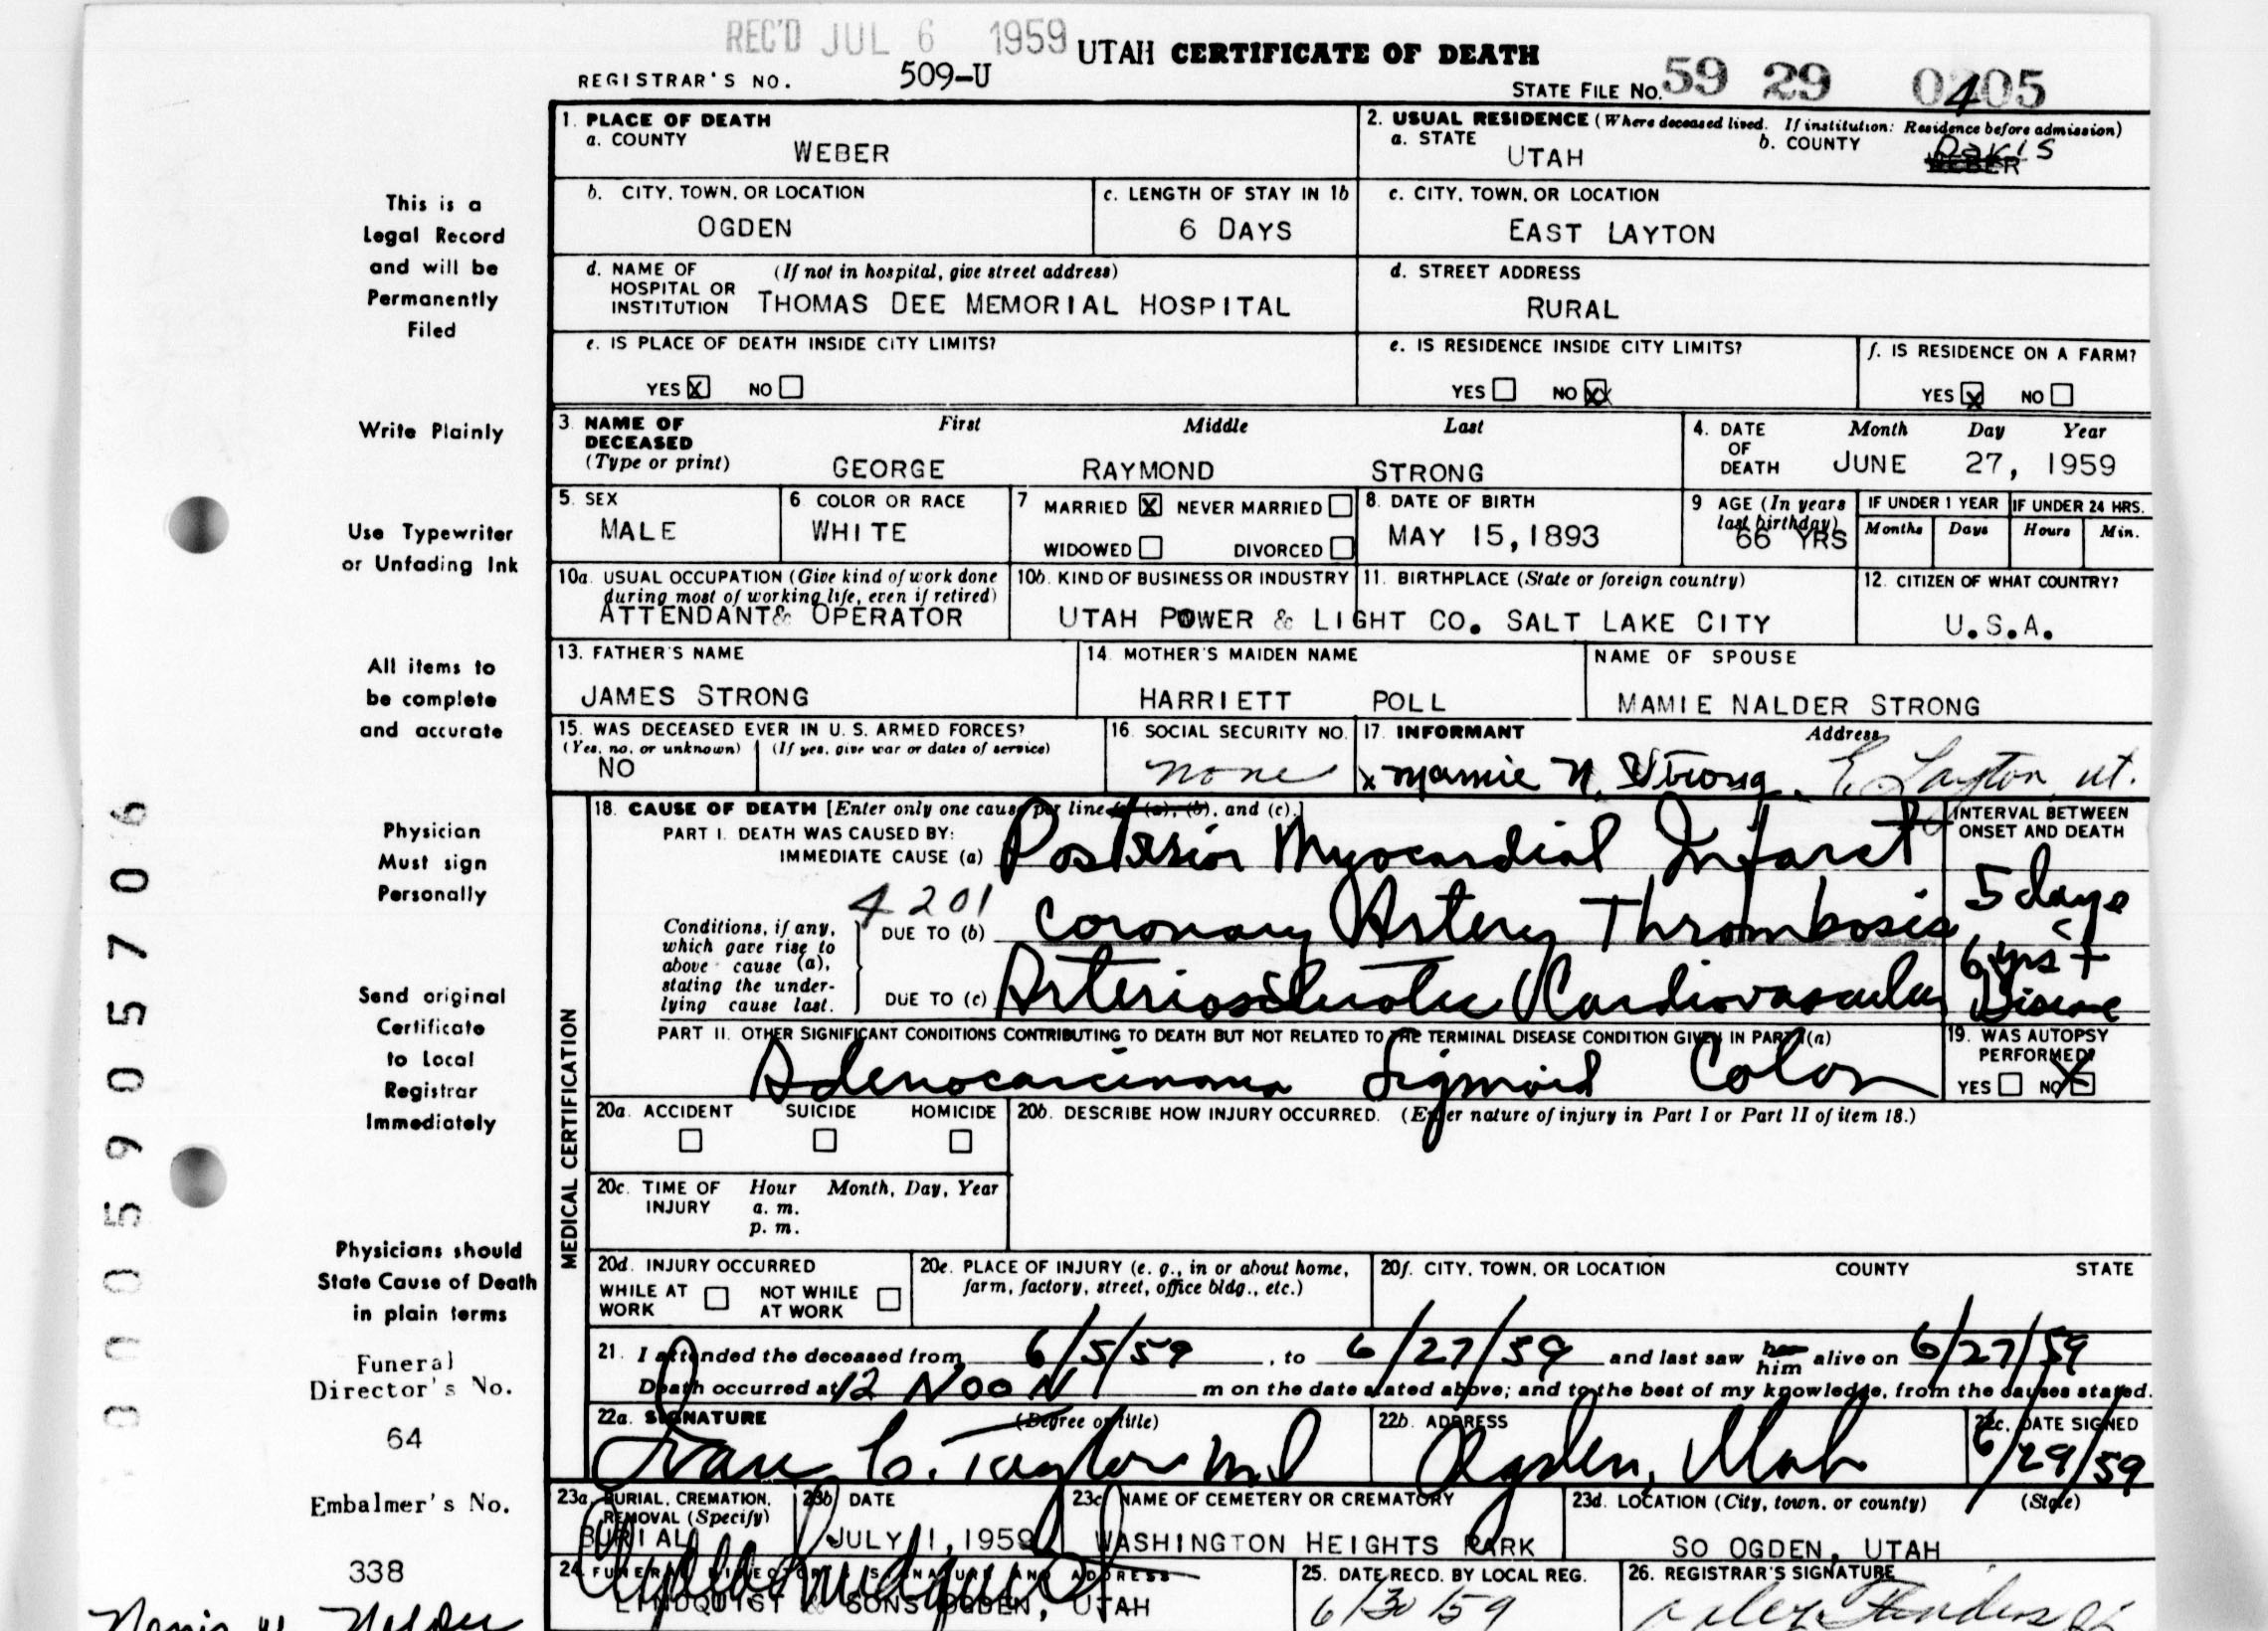 REC'D JUL 6 1959
UTAH CERTIFICATE OF DEATH
REGISTRAR'S NO. 509-U
STATE FILE NO. 59 29 0405
1. PLACE OF DEATH
a. COUNTY
WEBER
2. USUAL RESIDENCE (Where deceased lived. If institution: Residence before admission)
a. STATE
UTAH
b. COUNTY
Davis
WEBER
b. CITY, TOWN, OR LOCATION
OGDEN
c. LENGTH OF STAY IN 1b
6 DAYS
c. CITY, TOWN, OR LOCATION
EAST LAYTON
d. NAME OF HOSPITAL OR INSTITUTION (If not in hospital, give street address)
THOMAS DEE MEMORIAL HOSPITAL
d. STREET ADDRESS
RURAL
e. IS PLACE OF DEATH INSIDE CITY LIMITS?
YES X NO
e. IS RESIDENCE INSIDE CITY LIMITS?
YES NO XX
f. IS RESIDENCE ON A FARM?
YES X NO
3. NAME OF DECEASED (Type or print)
First Middle Last
GEORGE RAYMOND STRONG
4. DATE OF DEATH
Month Day Year
JUNE 27, 1959
5. SEX
MALE
6 COLOR OR RACE
WHITE
7 MARRIED X NEVER MARRIED
WIDOWED DIVORCED
8. DATE OF BIRTH
MAY 15,1893
9 AGE (In years last birthday)
66 YRS
IF UNDER 1 YEAR
Months Days
IF UNDER 24 HRS.
Hours Min.
10a. USUAL OCCUPATION (Give kind of work done during most of working life, even if retired)
ATTENDANT& OPERATOR
10b. KIND OF BUSINESS OR INDUSTRY
UTAH POWER & LIGHT CO.
11. BIRTHPLACE (State or foreign country)
SALT LAKE CITY
12. CITIZEN OF WHAT COUNTRY?
U.S.A.
13. FATHER'S NAME
JAMES STRONG
14. MOTHER'S MAIDEN NAME
HARRIETT POLL
NAME OF SPOUSE
MAMIE NALDER STRONG
15. WAS DECEASED EVER IN U. S. ARMED FORCES?
(Yes, no, or unknown) (If yes, give war or dates of service)
NO
16. SOCIAL SECURITY NO.
none
17. INFORMANT Address
x Mamie N. Strong. E Layton, ut.
MEDICAL CERTIFICATION
18. CAUSE OF DEATH [Enter only one cause per line of (a), (b), and (c).]
PART I. DEATH WAS CAUSED BY:
IMMEDIATE CAUSE (a) Posterior Myocardial Infarct
INTERVAL BETWEEN ONSET AND DEATH
5 days
4201
Conditions, if any, which gave rise to above cause (a), stating the underlying cause last.
DUE TO (b) Coronary Artery Thrombosis
6 yrs +
DUE TO (c) Arteriosclerotic Cardiovascular Disease
PART II. OTHER SIGNIFICANT CONDITIONS CONTRIBUTING TO DEATH BUT NOT RELATED TO THE TERMINAL DISEASE CONDITION GIVEN IN PART I(a)
Adenocarcinoma Sigmoid Colon
19. WAS AUTOPSY PERFORMED?
YES NO X
20a. ACCIDENT SUICIDE HOMICIDE
20b. DESCRIBE HOW INJURY OCCURRED. (Enter nature of injury in Part I or Part II of item 18.)
20c. TIME OF INJURY Hour Month, Day, Year
a. m.
p. m.
20d. INJURY OCCURRED
WHILE AT WORK NOT WHILE AT WORK
20e. PLACE OF INJURY (e. g., in or about home, farm, factory, street, office bldg., etc.)
20f. CITY, TOWN, OR LOCATION COUNTY STATE
21. I attended the deceased from 6/5/59, to 6/27/59 and last saw her him alive on 6/27/59
Death occurred at 12 NOON m on the date stated above; and to the best of my knowledge, from the causes stated.
22a. SIGNATURE (Degree or title)
C. Taylor M.D
22b. ADDRESS
Ogden, Utah
22c. DATE SIGNED
6/29/59
23a. BURIAL, CREMATION, REMOVAL (Specify)
BURIAL
23b. DATE
JULY 1, 1959
23c. NAME OF CEMETERY OR CREMATORY
WASHINGTON HEIGHTS PARK
23d. LOCATION (City, town, or county) (State)
SO OGDEN, UTAH
24. FUNERAL DIRECTOR'S SIGNATURE AND ADDRESS
LINDQUIST & SONS OGDEN, UTAH
25. DATE RECD. BY LOCAL REG.
6/30/59
26. REGISTRAR'S SIGNATURE
This is a
Legal Record
and will be
Permanently
Filed
Write Plainly
Use Typewriter
or Unfading Ink
All items to
be complete
and accurate
Physician
Must sign
Personally
Send original
Certificate
to Local
Registrar
Immediately
Physicians should
State Cause of Death
in plain terms
Funeral
Director's No.
64
Embalmer's No.
338
0005905706